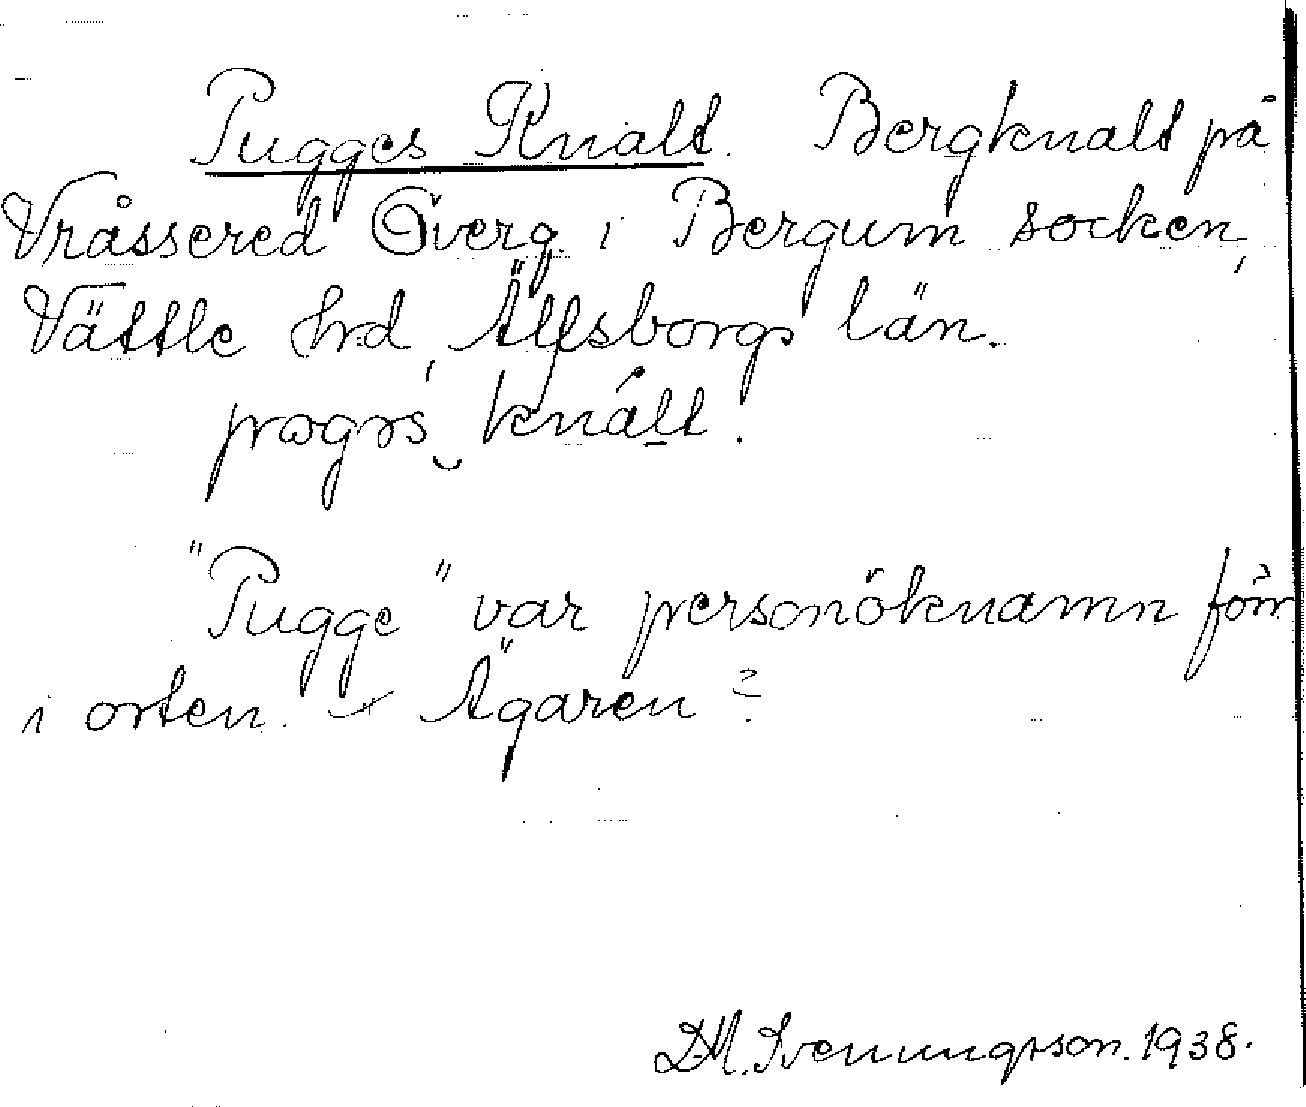 Pugges Knalt. Bergknalt på
Vråssered Överg. i Bergum socken,
Vättle hrd, Älfsborgs län.
"Pugge" var personöknamn förr
i orten. Ägaren?
D.M. Svenungsson. 1938.